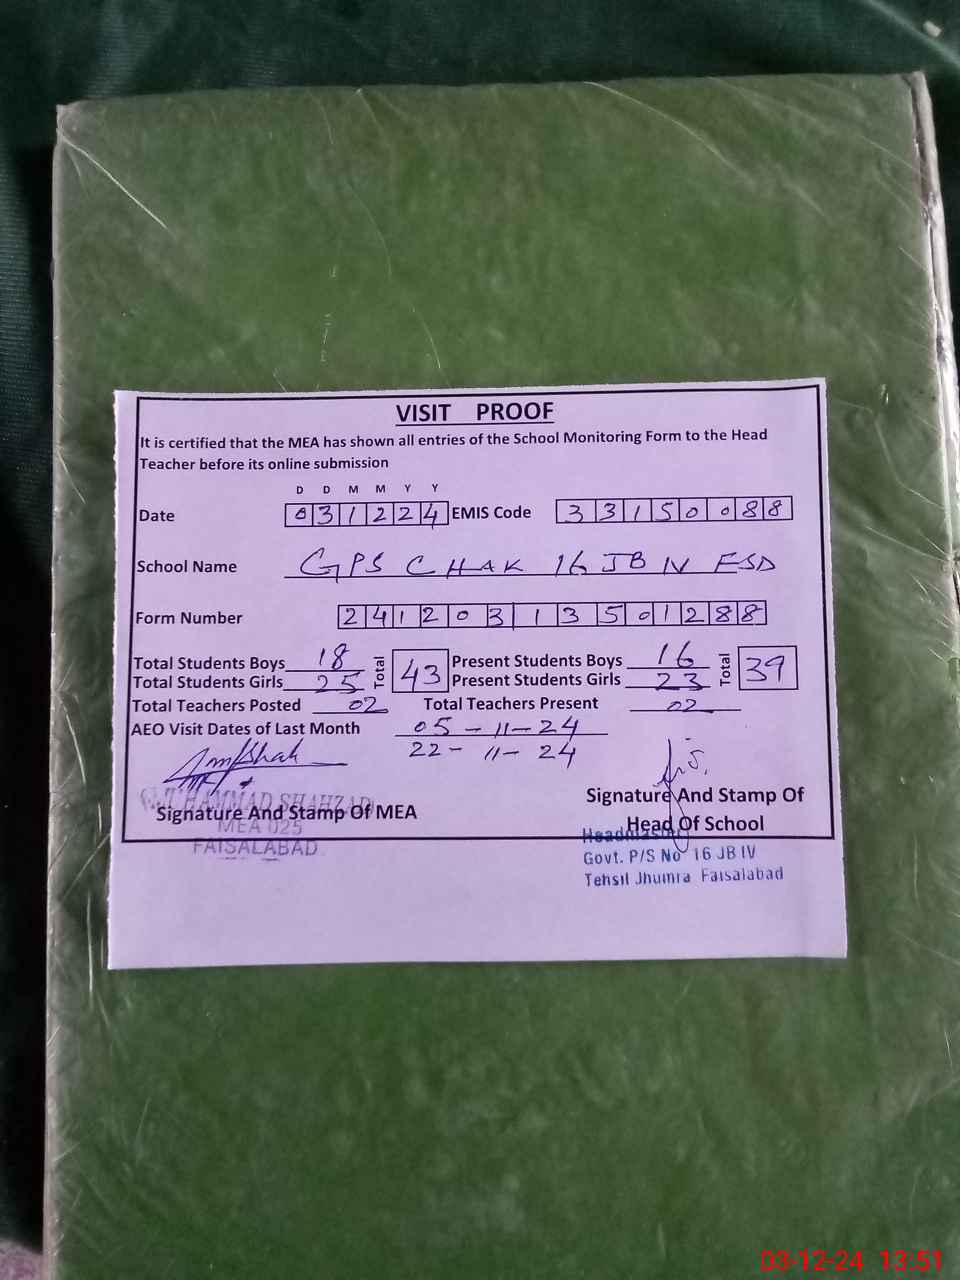 VISIT PROOF
It is certified that the MEA has shown all entries of the School Monitoring Form to the Head
Teacher before its online submission
D D M M Y Y
Date 031224 EMIS Code 33150088
School Name GPS CHAK 16 JB IV FSD
Form Number 24120313501288
Total Students Boys 18 Total 43 Present Students Boys 16 Total 39
Total Students Girls 25 Present Students Girls 23
Total Teachers Posted 02 Total Teachers Present 02
AEO Visit Dates of Last Month 05-11-24
22-11-24
Signature And Stamp Of MEA
HAMMAD SHAHZAD
MEA 025
FAISALABAD
Signature And Stamp Of
Head Of School
Headmaster
Govt. P/S No 16 JB IV
Tehsil Jhumra Faisalabad
03-12-24 13:51